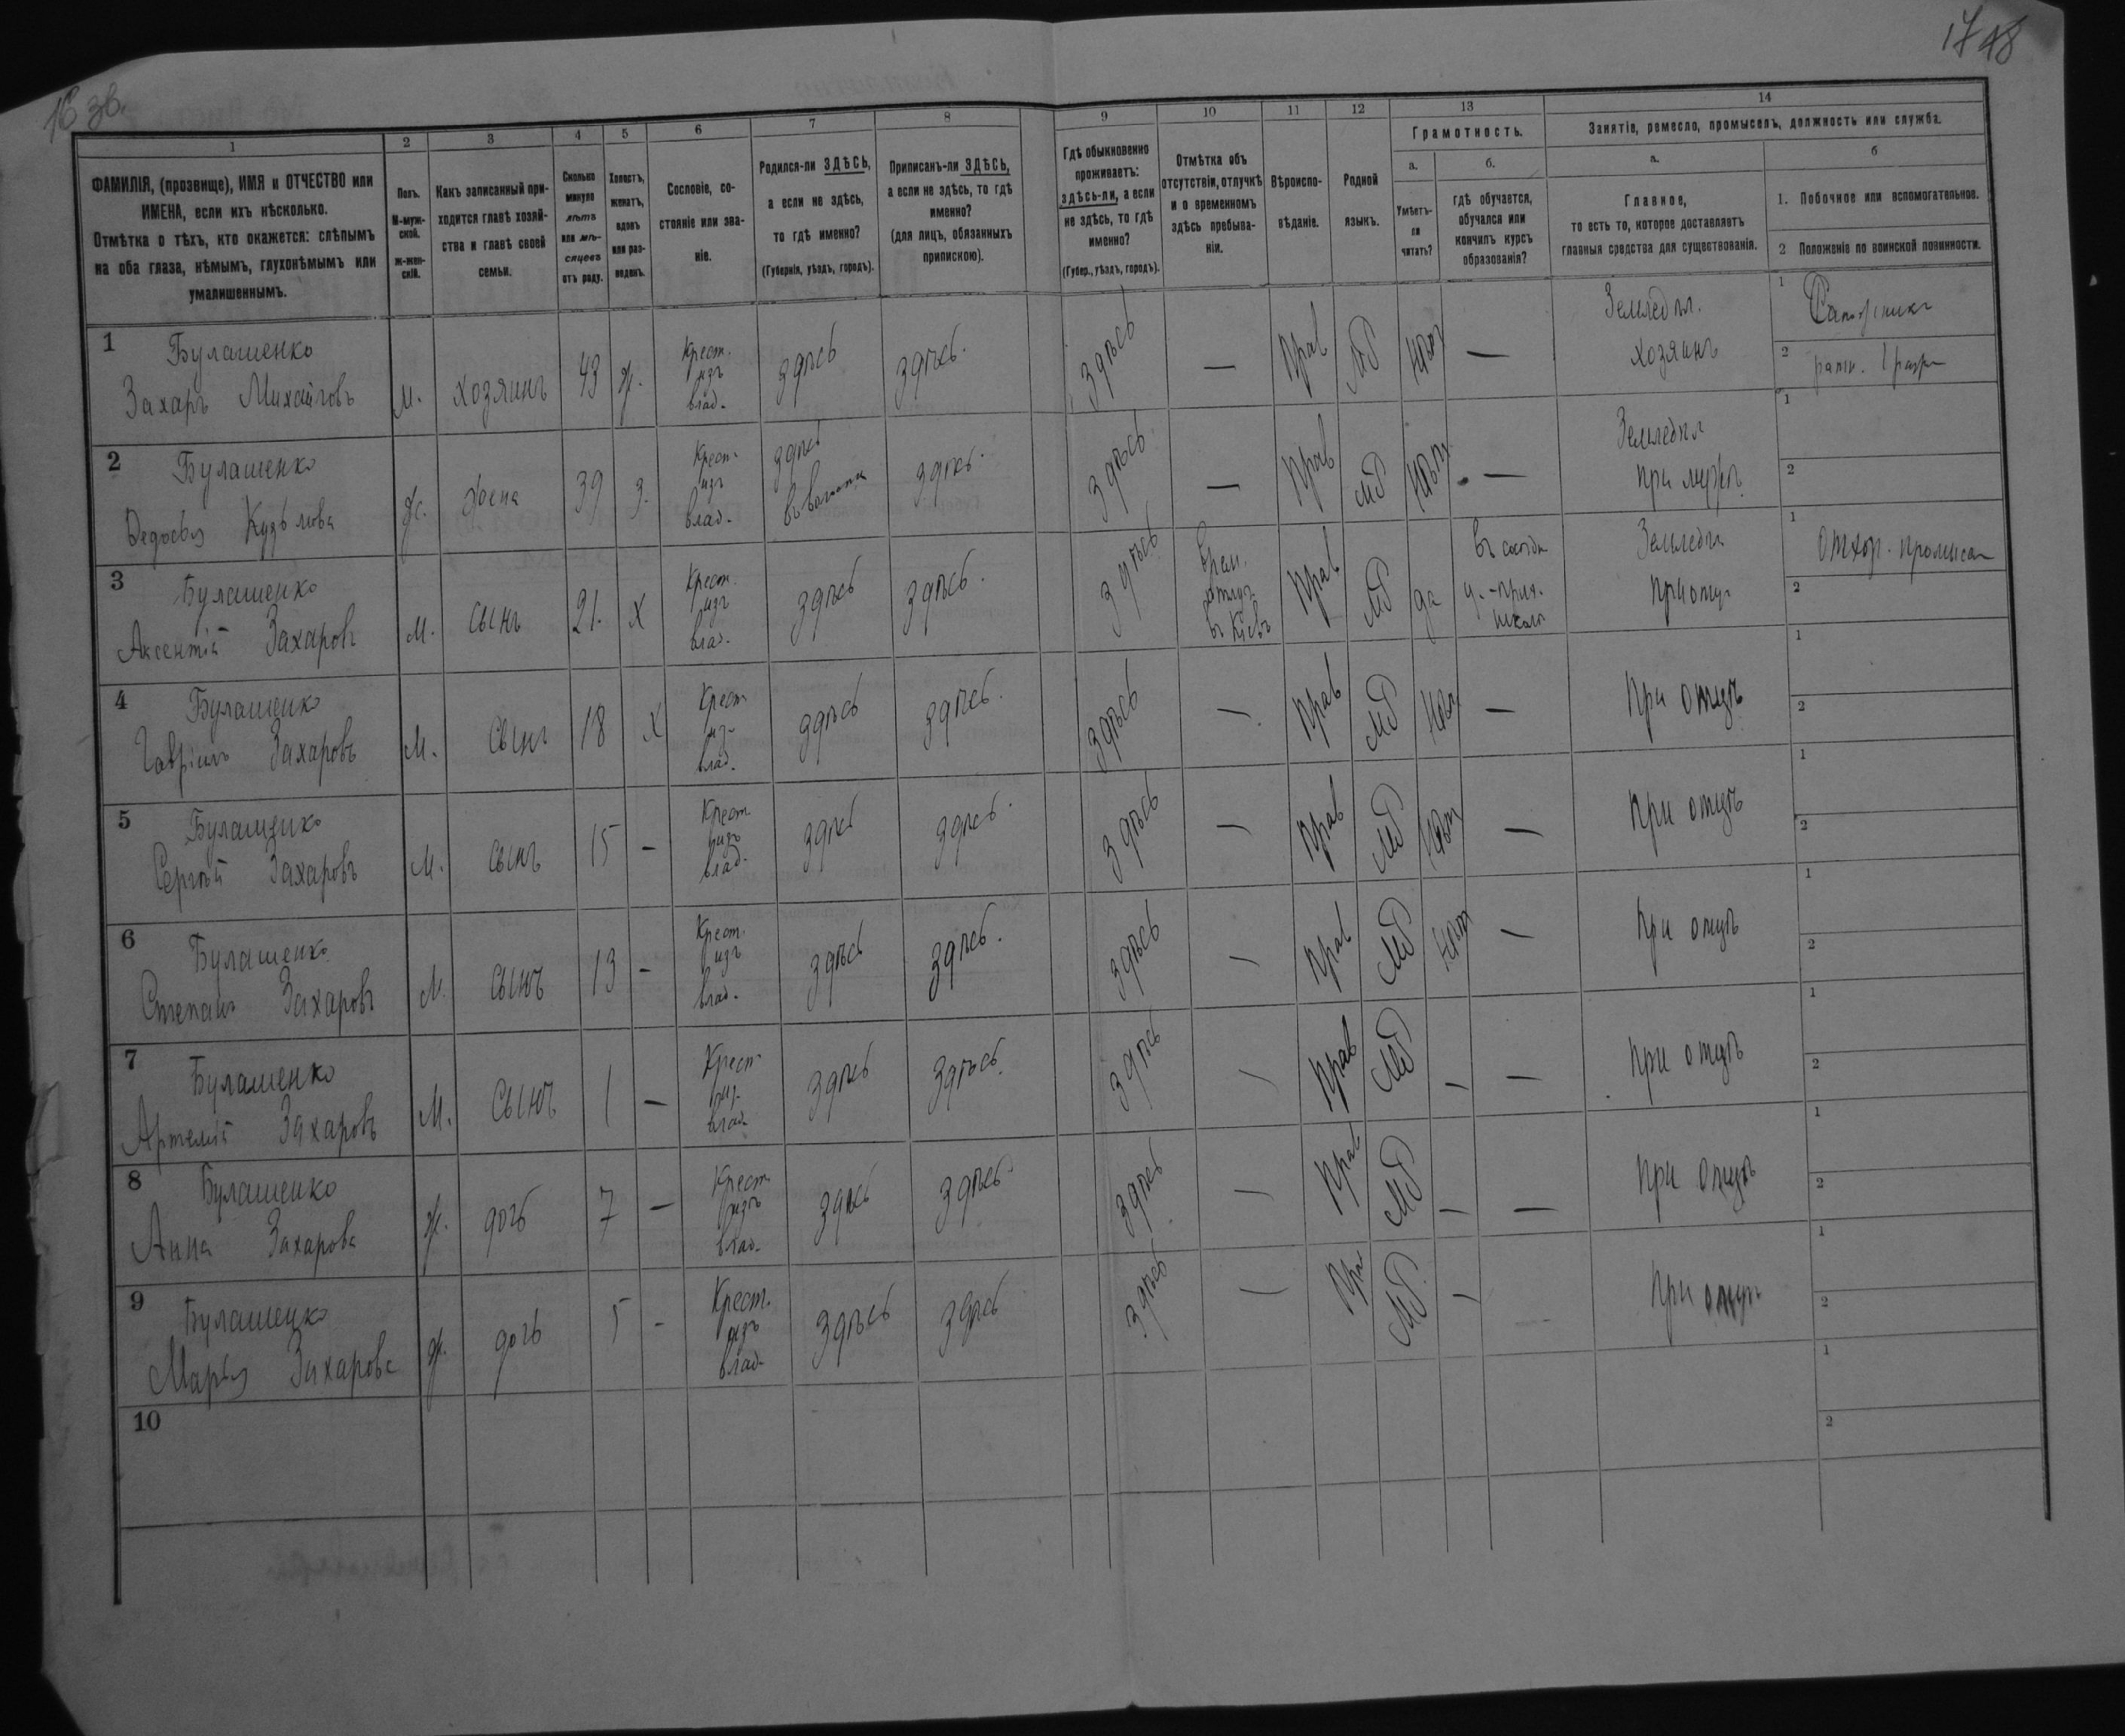 16 зв.
17 48
1
ФАМИЛІЯ, (прозвище), ИМЯ и ОТЧЕСТВО или
ИМЕНА, если ихъ нѣсколько.
Отмѣтка о тѣхъ, кто окажется: слѣпымъ
на оба глаза, нѣмымъ, глухонѣмымъ или
умалишеннымъ.
2
Полъ.
М-муж-
ской.
ж-жен-
скій.
3
Какъ записанный при-
ходится главѣ хозяй-
ства и главѣ своей
семьи.
4
Сколько
минуло
лѣтъ
или мѣ-
сяцевъ
отъ роду.
5
Холостъ,
женатъ,
вдовъ
или раз-
веденъ.
6
Сословіе, со-
стояніе или зва-
ніе.
7
Родился-ли ЗДѢСЬ,
а если не здѣсь,
то гдѣ именно?
(Губернія, уѣздъ, городъ).
8
Приписанъ-ли ЗДѢСЬ,
а если не здѣсь, то гдѣ
именно?
(для лицъ, обязанныхъ
припискою).
9
Гдѣ обыкновенно
проживаетъ:
здѣсь-ли, а если
не здѣсь, то гдѣ
именно?
(Губер., уѣздъ, городъ).
10
Отмѣтка объ
отсутствіи, отлучкѣ
и о временномъ
здѣсь пребыва-
ніи.
11
Вѣроиспо-
вѣданіе.
12
Родной
языкъ.
13
Грамотность.
а.
Умѣетъ-
ли
читать?
б.
гдѣ обучается,
обучался или
кончилъ курсъ
образованія?
14
Занятіе, ремесло, промыселъ, должность или служба.
а.
Главное,
то есть то, которое доставляетъ
главныя средства для существованія.
б
1. Побочное или вспомогательное.
2 Положеніе по воинской повинности.
1
Булашенко
Захаръ Михайловъ
М. хозяинъ 43 ж.
Крест.
изъ
влад.
здѣсь здѣсь. Здѣсь — Прав МР нѣт —
Земледѣл.
хозяинъ
1
2 ратн. 1 разр
2
Булашенко
Федосья Кузьмова
ж. жена 39 з.
Крест.
изъ
влад.
здѣсь
здѣсь. Здѣсь — Прав МР нѣт —
Земледѣл
при мужѣ.
1
2
3
Булашенко
Аксентій Захаровъ
М. сынъ 21. х
Крест.
изъ
влад.
здѣсь здѣсь. Здѣсь
врем.
отлуч.
въ Кіевъ
Прав МР да
Земледѣл
при отцѣ
1 отхож. промысел
2
4
Булашенко
Гавріилъ Захаровъ
М. сынъ 18 х
Крест
из-
влад.
здѣсь здѣсь. Здѣсь — Прав МР нѣт —
При отцѣ
1
2
5
Булашенко
Сергѣй Захаровъ
М. сынъ 15 —
Крест
изъ
влад.
здѣсь здѣсь. Здѣсь — Прав МР нѣт —
При отцѣ
1
2
6
Булашенко
Степанъ Захаровъ
М. сынъ 13 —
Крест.
изъ
влад.
здѣсь здѣсь. Здѣсь — Прав МР нѣт —
При отцѣ
1
2
7
Булашенко
Артемій Захаровъ
М. сынъ 1 —
Крест
из-
влад
здѣсь здѣсь. Здѣсь — Прав МР — —
При отцѣ
1
2
8
Булашенко
Анна Захарова
ж. дочь 7 —
Крест
изъ
влад.
здѣсь здѣсь Здѣсь — Прав МР — —
При отцѣ
1
2
9
Булашенко
Марья Захарова
ж. дочь 5 —
Крест.
изъ
влад-
здѣсь здѣсь Здѣсь — Пра МР. —
При отцѣ
1
2
10
1
2